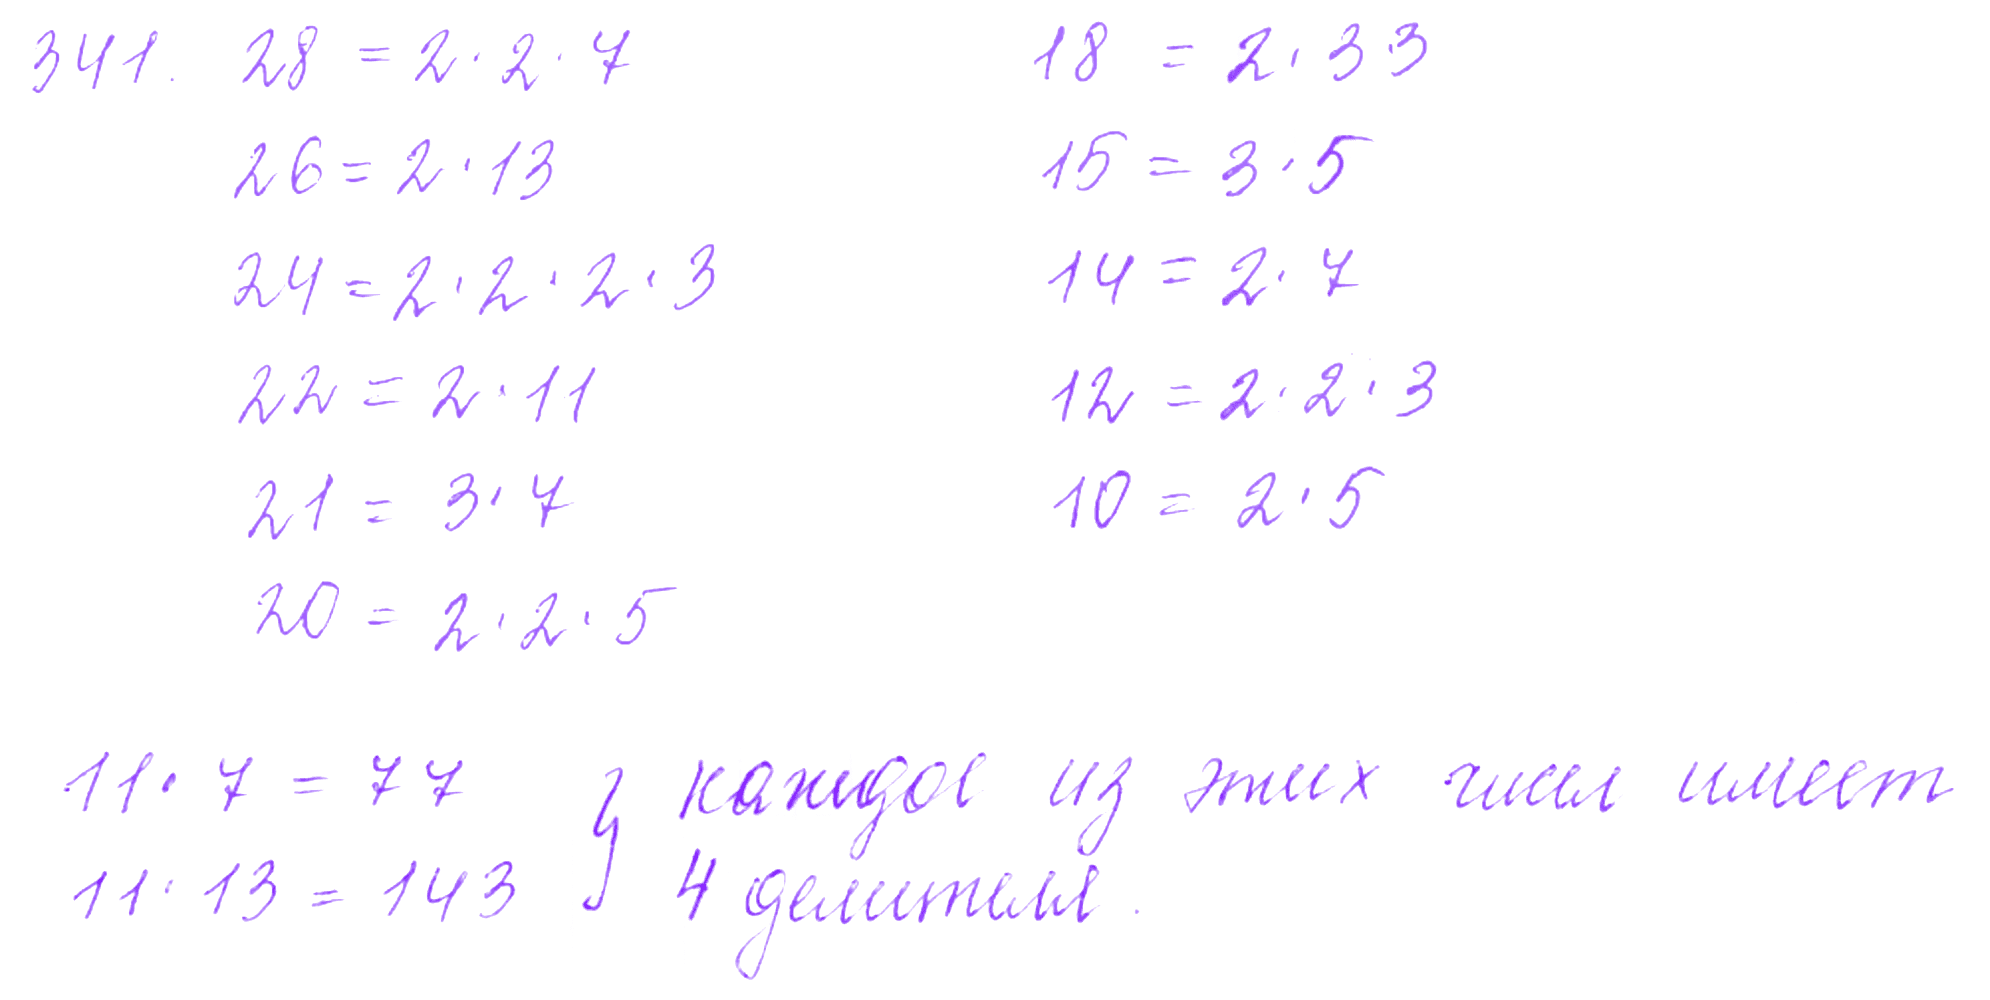 341. 28 = 2 · 2 · 7
26 = 2 · 13
24 = 2 · 2 · 2 · 3
22 = 2 · 11
21 = 3 · 7
20 = 2 · 2 · 5
18 = 2 · 3 · 3
15 = 3 · 5
14 = 2 · 7
12 = 2 · 2 · 3
10 = 2 · 5
11 · 7 = 77 } каждое из этих чисел имеет
11 · 13 = 143 4 делителя.